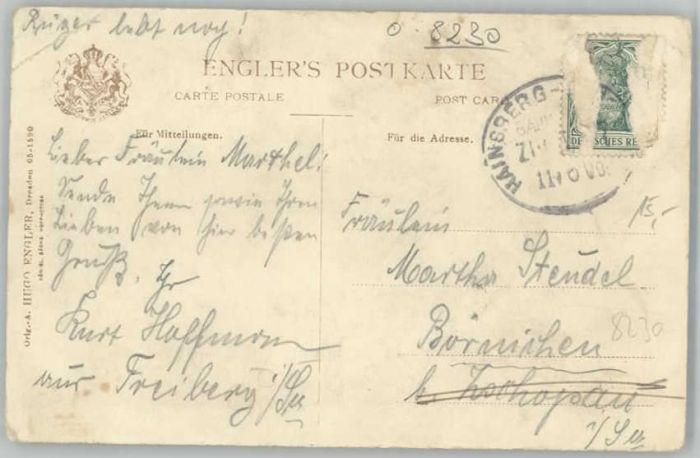 Rüger lebt noch!
0. 8230
ENGLER'S POSTKARTE
CARTE POSTALE
POST CAR
Für Mitteilungen.
Für die Adresse.
Lieber Fräulein Marthel!
Sende Ihnen sowie Ihren
Lieben von hier besten
Gruß. Ihr
Kurt Hoffmann
aus Freiberg i/Sa
Fräulein
Martha Steudel
Börnichen
b. Zschopau
i/Sa
15,-
8230
HAINSBERG-
DEUTSCHES RE
Orig.-A. HUGO ENGLER, Dresden 05-1590